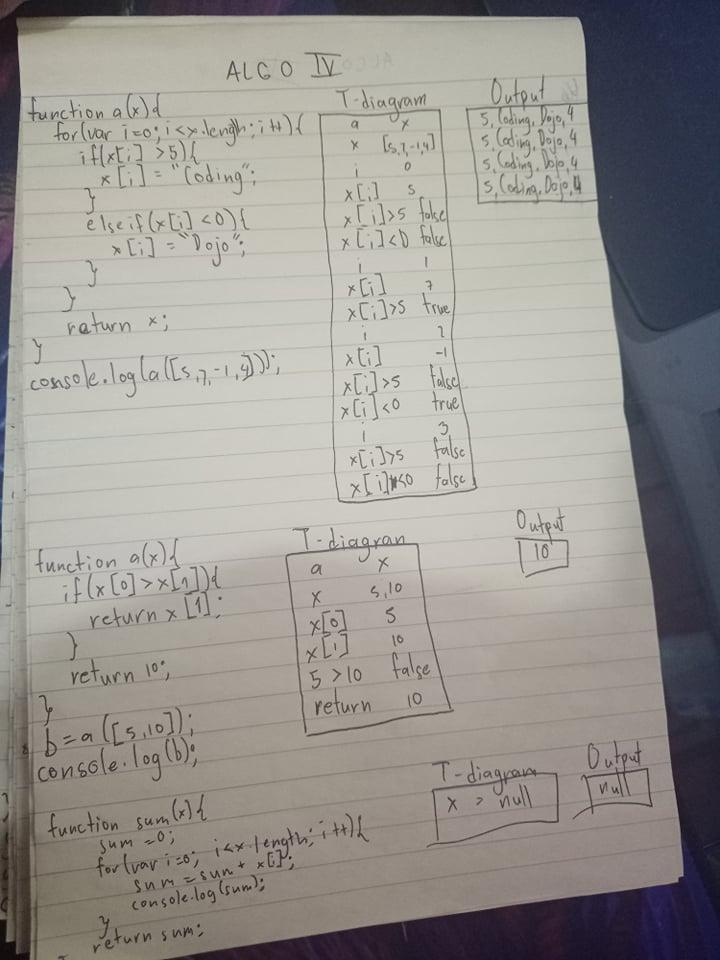 ALGO IV
function a(x){
for(var i=0; i<x.length; i++){
if(x[i] >5){
x[i] = "Coding";
}
else if(x[i] <0){
x[i] = "Dojo";
}
}
return x;
}
console.log(a([5,7,-1,4]));
T-diagram
a x
x [5,7,-1,4]
i 0
x[i] 5
x[i]>5 false
x[i]<0 false
i 1
x[i] 7
x[i]>5 true
i 2
x[i] -1
x[i]>5 false
x[i]<0 true
i 3
x[i]>5 false
x[i]<0 false
Output
5, Coding, Dojo, 4
5, Coding, Dojo, 4
5, Coding, Dojo, 4
5, Coding, Dojo, 4
function a(x){
if(x[0]>x[1]){
return x[1];
}
return 10;
}
b=a([5,10]);
console.log(b);
T-diagran
a x
x 5,10
x[0] 5
x[1] 10
5 >10 false
return 10
Output
10
function sum(x){
sum =0;
for(var i=0; i<x.length; i++){
sum = sum + x[i];
console.log(sum);
}
return sum;
T-diagram
x > null
Output
null